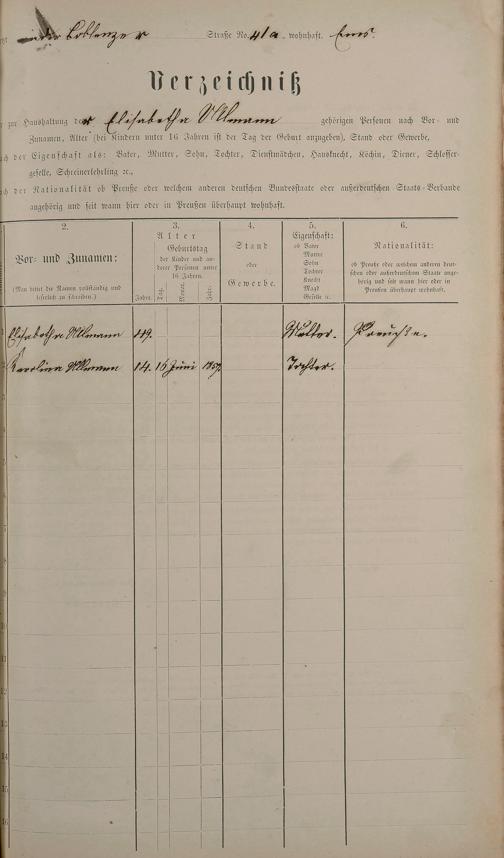 in der Coblenzer Straße No. 41a. wohnhaft. Ems.
Verzeichniß
zur Haushaltung der Elisabetha Ullmann gehörigen Personen nach Vor- und
Zunamen, Alter (bei Kindern unter 16 Jahren ist der Tag der Geburt anzugeben), Stand oder Gewerbe,
nach der Eigenschaft als: Vater, Mutter, Sohn, Tochter, Dienstmädchen, Hausknecht, Köchin, Diener, Schlosser-
geselle, Schreinerlehrling ꝛc.,
nach der Nationalität ob Preuße oder welchem anderen deutschen Bundesstaate oder außerdeutschen Staats-Verbande
angehörig und seit wann hier oder in Preußen überhaupt wohnhaft.
2. 3. 4. 5. 6.
Vor- und Zunamen:
(Man bittet die Namen vollständig und
leserlich zu schreiben.)
Alter
Geburtstag
der Kinder und an-
derer Personen unter
16 Jahren.
Jahre. Tag. Monat. Jahr.
Stand
oder
Gewerbe.
Eigenschaft:
ob Vater
Mutter
Sohn
Tochter
Knecht
Magd
Geselle ꝛc.
Nationalität:
ob Preuße oder welchem anderen deut-
schen oder außerdeutschen Staate ange-
hörig und seit wann hier oder in
Preußen überhaupt wohnhaft.
Elisabetha Ullmann 49. Mutter. Preuße.
2 Karolina Ullmann 14. 16 Juni 1857. Tochter.
3
4
5
6
7
8
9
10
11
12
13
14
15
16